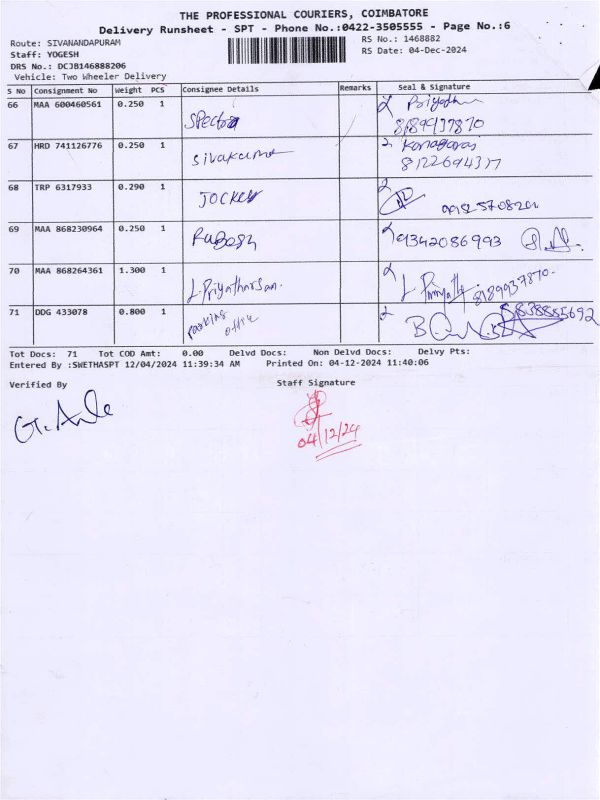 THE PROFESSIONAL COURIERS, COIMBATORE
Delivery Runsheet - SPT - Phone No.:0422-3505555 - Page No.:6
Route: SIVANANDAPURAM RS No.: 1468882
Staff: YOGESH RS Date: 04-Dec-2024
DRS No.: DCJB146888206
Vehicle: Two Wheeler Delivery
S No Consignment No Weight PCS Consignee Details Remarks Seal & Signature
66 MAA 600460561 0.250 1 Spectra Priyadha
8189937870
67 HRD 741126776 0.250 1 Sivakumar Kanagaraj
8122694317
68 TRP 6317933 0.290 1 JOCKEY
69 MAA 868230964 0.250 1 9342086993
70 MAA 868264361 1.300 1 L.Priyatharsan. L.
8189937870-
71 DDG 433078 0.800 1 parking
office
8838885692
Tot Docs: 71 Tot COD Amt: 0.00 Delvd Docs: Non Delvd Docs: Delvy Pts:
Entered By :SWETHASPT 12/04/2024 11:39:34 AM Printed On: 04-12-2024 11:40:06
Verified By Staff Signature
04/12/24